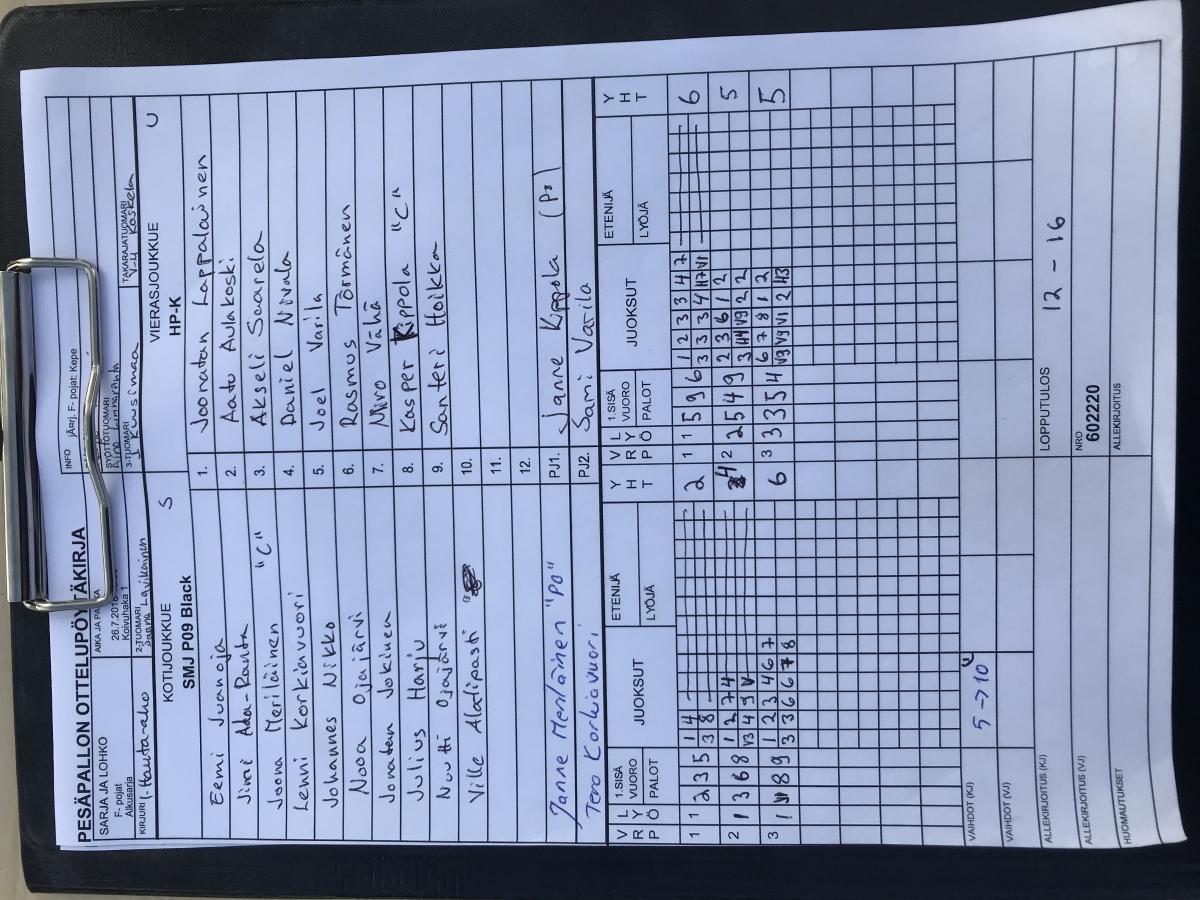 PESÄPALLON OTTELUPÖYTÄKIRJA
SARJA JA LOHKO
F- pojat
Alkusarja
AIKA JA PAIKKA
26.7.2018
Koivuhaka 1
INFO jÃ¤rj. F- pojat: Kepe
SYÖTTÖTUOMARI
Aino Linnaranta
TAKARAJATUOMARI
V-M Koskela
KIRJURI I. Hauta-aho
2-TUOMARI
Saana Lavikainen
3-TUOMARI
J Kuusimaa
KOTIJOUKKUE S
SMJ P09 Black
VIERASJOUKKUE U
HP-K
Eemi Juanoja 1. Joonatan Lappalainen
Jimi Ada-Ranta 2. Aatu Aulakoski
Joona Meriläinen "C" 3. Akseli Saarela
Lenni Korkiavuori 4. Daniel Nivala
Johannes Nikko 5. Joel Varila
Nooa Ojajärvi 6. Rasmus Törmänen
Jonatan Jokinen 7. Niiro Vähä
Julius Harju 8. Kasper Kippola "C"
Nuutti Ojajärvi 9. Santeri Hoikka
Ville Alatipasti 10.
11.
12.
Janne Meriläinen "PO" PJ1. Janne Kippola (Po)
Tero Korkiavuori PJ2. Sami Varila
V R P L Y Ö 1.SISÄ VUORO PALOT JUOKSUT ETENIJÄ LYÖJÄ Y H T V R P L Y Ö 1.SISÄ VUORO PALOT JUOKSUT ETENIJÄ LYÖJÄ Y H T
1 1 2 3 5 1 4 2 1 1 5 9 6 1 2 3 3 4 7 6
3 8 3 3 3 4 H7 V1
2 1 3 6 8 1 2 7 4 4 2 2 5 4 9 2 3 6 1 2 5
V3 4 9 V 3 H4 V9 2 2
3 1 8 9 1 2 3 4 6 7 6 3 3 3 5 4 6 7 8 1 2 5
3 3 6 6 7 8 V9 V9 V1 2 H3
VAIHDOT (KJ) 5 -> 10
VAIHDOT (VJ)
ALLEKIRJOITUS (KJ) LOPPUTULOS 12 - 16
ALLEKIRJOITUS (VJ) NRO
602220
HUOMAUTUKSET ALLEKIRJOITUS